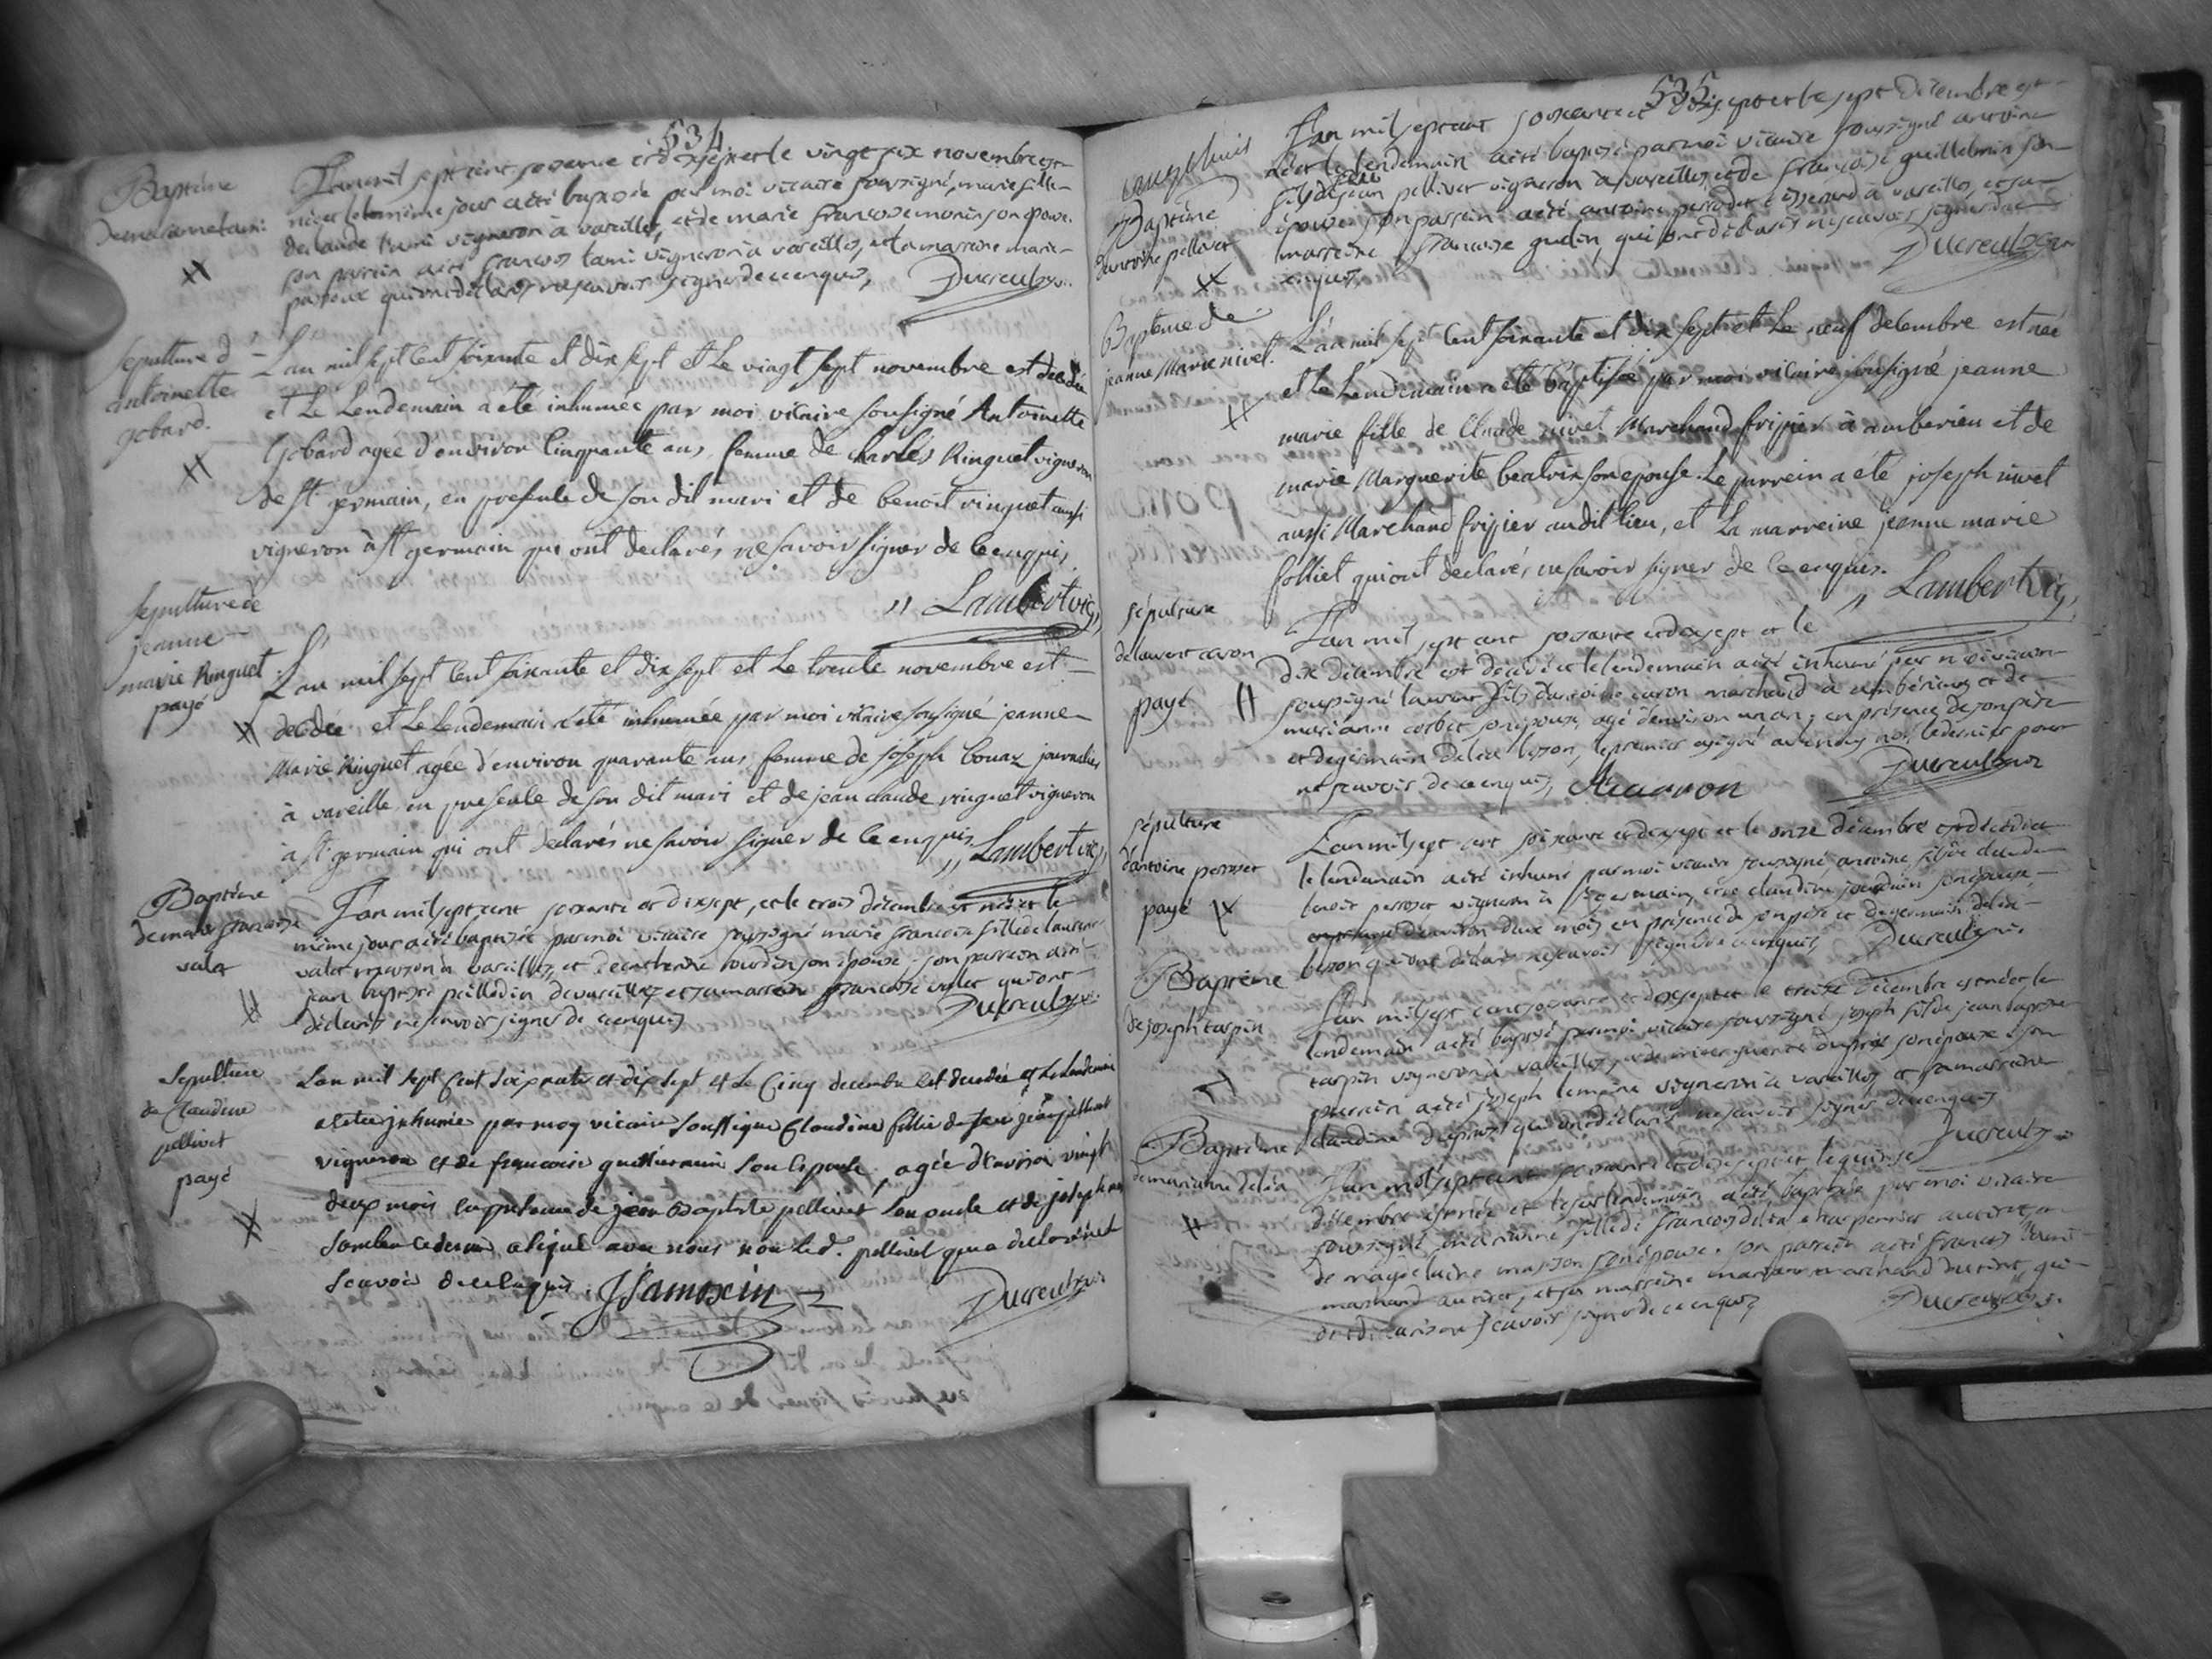 534
Baptême
L'an mil sept cent soxante et dixsept et le vingt six novembre est
née et le même jour a été baptisée par moi vicaire soussigné, marie fille
de claude tami vigneron à vareilles, et de marie francoise morin son épouse.
son parrein a été francois tami vigneron à vareilles, et la marreine marie
qui ont déclarés ne scavoir signer de ce enquis, Ducreulx vic.
sepulture d
antoinette
gobard.
L'an mil sept cent soixante et dix sept et Le vingt sept novembre est decedée
et Le Lendemain a été inhumée par moi vicaire sousigné Antoinette
Gobard agée d'environ cinquante ans, femme de charles Ringuet vigneron
de st germain, en presence de son dit mari et de benoit ringuet aussi
vigneron à st germain qui ont declarés ne savoir signer de ce enquis.
Lambert vic,
sepulture de
jeanne
marie Ringuet
payé
L'an mil sept cent soixante et dix sept et Le trente novembre est
decedée et Le lendemain a été inhumée par moi vicaire sousigné jeanne
Marie Ringuet agée d'environ quarante ans, femme de joseph bonaz journalier
à vareille en presence de son dit mari et de jean claude ringuet vigneron
à st germain qui ont declarés ne savoir signer de ce enquis. Lambert vic,
Baptême
de marie francoise
valet
L'an mil sept cent soxante et dixsept, et le trois décembre est née et le
même jour a été baptisée par moi vicaire soussigné marie francoise fille de laurent
valet maçon à vareilles, et de catherine tourdin son épouse. son parrein a été
jean baptiste peillodin de vareilles et sa marreine francoise valet qui ont
déclarés ne scavoir signer de ce enquis Ducreulx vic.
Sepulture
de Claudine
pellivet
payé
L'an mil sept Cent soixante et dix sept et Le Cinq decembre est decedée et Le Lendemain
a etée inhumée par moy vicaire soussigné Claudine fillie de feu jean pellivet
vigneron et de francoise guillermin son epouse, agée d'environ vingt
deux mois en presence de jean Baptiste pellivet son oncle et de joseph
a signé avec nous non led. pellivet qui a declaré ne
scavoir de ce enquis JSamoxin Ducreulx vic.
535
Baptême
d'antoine pellivet
L'an mil sept cent soxante et dixsept et le sept décembre est
né et le lendemain a été baptisé par moi vicaire soussigné antoine
fils de jean pellivet vigneron à vareilles, et de francoise guillermin son
épouse, son parrein a été antoine à vareilles, et sa
marreine francoise gudin, qui ont déclarés ne scavoir signer de ce
enquis, Ducreulx vic.
Bapteme de
jeanne Marie nivet.
L'an mil sept cent soixante et dix sept et Le neuf decembre est née
et le Lendemain a été baptisée par moi vicaire sousigné jeanne
marie fille de Claude nivet Marchand fripier à amberieu et de
marie Marguerite beatrix son epouse. Le parrein a été joseph nivet
aussi Marchand fripier au dit lieu, et La marreine jeanne marie
folliet qui ont declarés ne savoir signer de ce enquis. Lambert vic,
sépulture
de laurent caron
payé
L'an mil sept cent soxante et dixsept et le
dix décembre est décédé et le lendemain a été inhumé par moi vicaire
soussigné laurent fils d'antoine caron marchand à ambérieux et de
marianne corbet son épouse, agé d'environ un an, en présence de son père
et de germain delix bezon, le premier a signé avec nous non le dernier pour
ne scavoir de ce enquis, Ducreulx vic
sépulture
d'antoine perroset
payé
L'an mil sept cent soixante et dixsept et le onze décembre est décédé et
le lendemain a été inhumé par moi vicaire soussigné, antoine fils de
benoit perroset vigneron à st germain, et de claudine jourdain son épouse,
d'environ deux mois en présence de son père et de germain delix
bezon qui ont déclaré ne scavoir signer de ce enquis, Ducreulx vic.
Baptême
de joseph tarpin
L'an mil sept cent soxante et dixsept et le treize décembre est né et le
lendemain a été baptisé par moi vicaire soussigné joseph fils de jean baptiste
tarpin vigneron à vareilles, et de marguerite dupré son épouse son
parrein a été joseph vigneron à vareilles et sa marreine
claudine qui ont déclarés ne scavoir signer de ce enquis
Ducreulx vic
Baptême
de marianne delix
L'an mil sept cent soxante et dixsept et le quinze
décembre est née et le lendemain a été baptisée par moi vicaire
soussigné marianne fille de francois delix charpentier au tiret, et
de magdelaine masson son épouse. son parrein a été francois
marchand au tiret, et sa marreine marianne marchand du tiret, qui
ont déclarés ne scavoir signer de ce enquis Ducreulx vic.